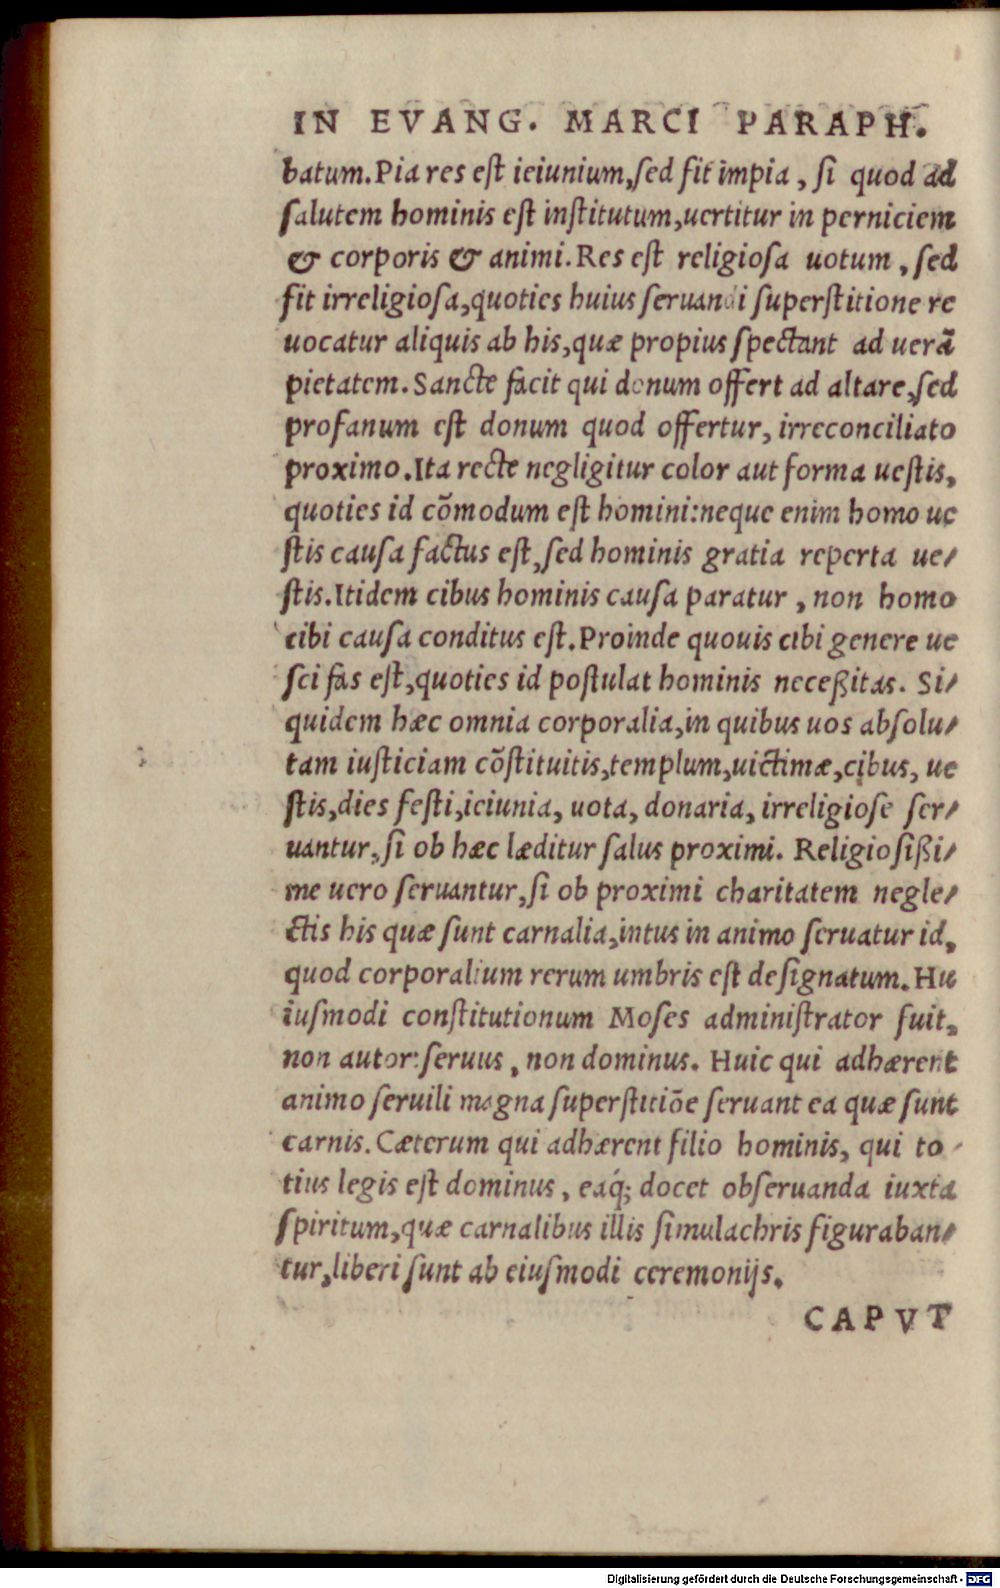 IN EVANG. MARCI PARAPH.
batum. Pia res est ieiunium, sed fit impia, si quod ad
salutem hominis est institutum, uertitur in perniciem
& corporis & animi. Res est religiosa uotum, sed
fit irreligiosa, quoties huius seruandi superstitione re
uocatur aliquis ab his, quæ propius spectant ad uerã
pietatem. Sancte facit qui donum offert ad altare, sed
profanum est donum quod offertur, irreconciliato
proximo. Ita recte negligitur color aut forma uestis,
quoties id cõmodum est homini: neque enim homo ue
stis causa factus est, sed hominis gratia reperta ue/
stis. Itidem cibus hominis causa paratur, non homo
cibi causa conditus est. Proinde quouis cibi genere ue
sci fas est, quoties id postulat hominis neceßitas. Si/
quidem hæc omnia corporalia, in quibus uos absolu/
tam iusticiam cõstituitis, templum, uictimæ, cibus, ue
stis, dies festi, ieiunia, uota, donaria, irreligiose ser/
uantur, si ob hæc læditur salus proximi. Religiosißi/
me uero seruantur, si ob proximi charitatem negle/
ctis his quæ sunt carnalia, intus in animo seruatur id,
quod corporalium rerum umbris est designatum. Hu
iusmodi constitutionum Moses administrator fuit,
non autor: seruus, non dominus. Huic qui adhærent
animo seruili magna superstitiõe seruant ea quæ sunt
carnis. Cæterum qui adhærent filio hominis, qui to/
tius legis est dominus, eaq́; docet obseruanda iuxta
spiritum, quæ carnalibus illis simulachris figuraban/
tur, liberi sunt ab eiusmodi ceremonijs.
CAPVT
Digitalisierung gefördert durch die Deutsche Forschungsgemeinschaft - DFG